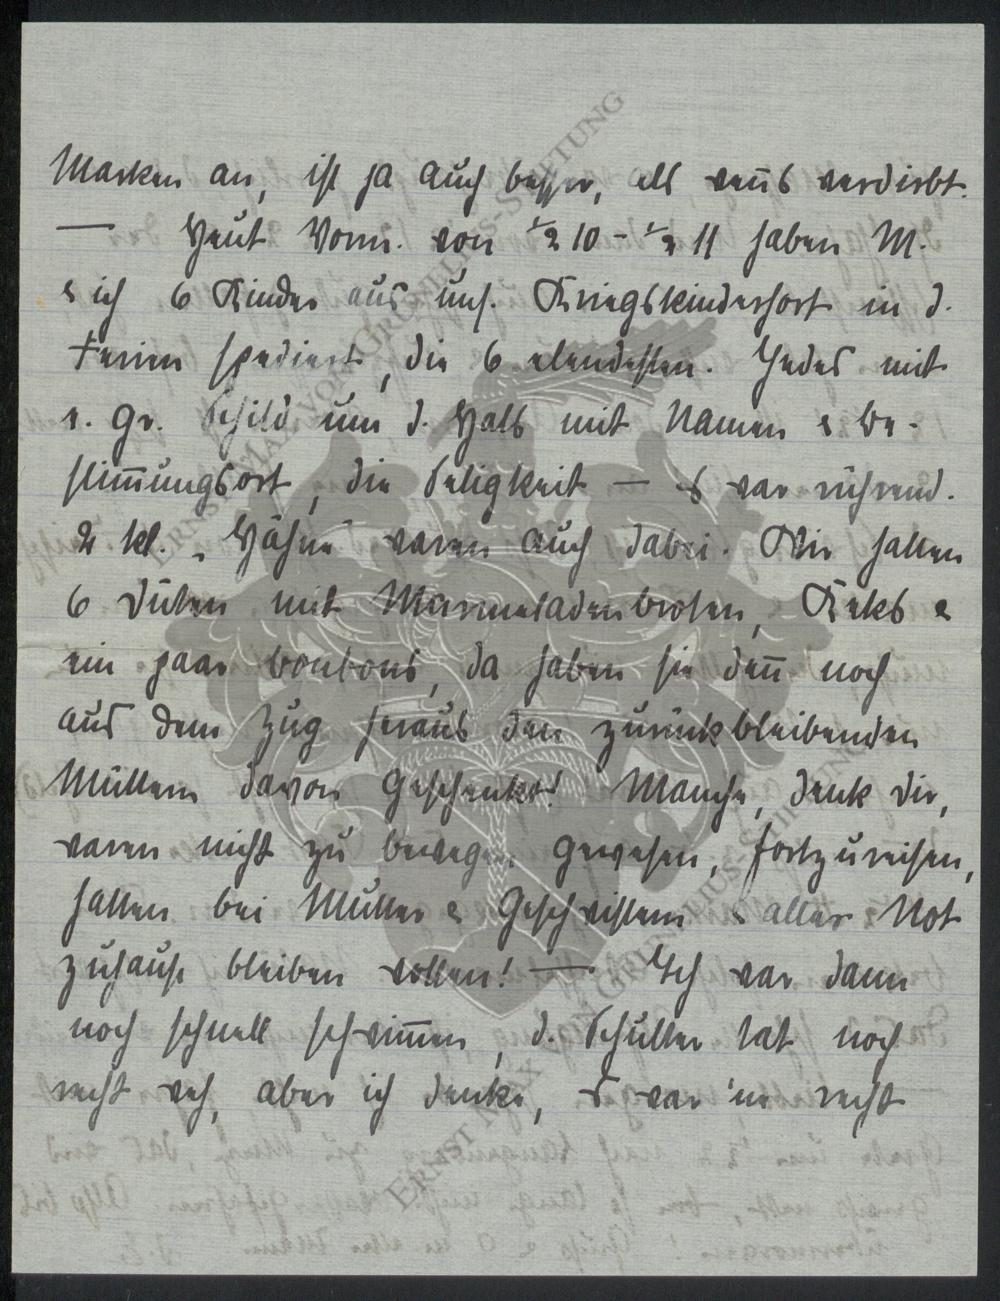 Marken an, ist ja auch besser, als wen̄s verdirbt.
— Heut Vorm. von ½ 10 – ½ 11 haben M.
& ich 6 Kinder aus uns. Kriegskinderhort in d.
Ferien spediert, die 6 elendesten. Jedes mit
e. gr. Schild um d. Hals mit Namen & Be-
stim̄ungsort, die Seligkeit — es war rührend.
2 kl. „Hähne" waren auch dabei. Wir hatten
6 Düten mit Marmeladenbroten, Keks &
ein paar bonbons, da haben sie den̄ noch
aus dem Zug heraus den zurückbleibenden
Müttern davon geschenkt! Manche, denk dir,
waren nicht zu bewegen gewesen, fortzureisen,
hatten bei Mutter & Geschwistern & aller Not
zuhause bleiben wollen! — Ich war dann
noch schnell schwim̄en, d. Schulter tat noch
recht weh, aber ich denke, es war 'ne recht
ERNST MAX VON GRUNELIUS-STIFTUNG
ERNST MAX VON GRUNELIUS-STIFTUNG